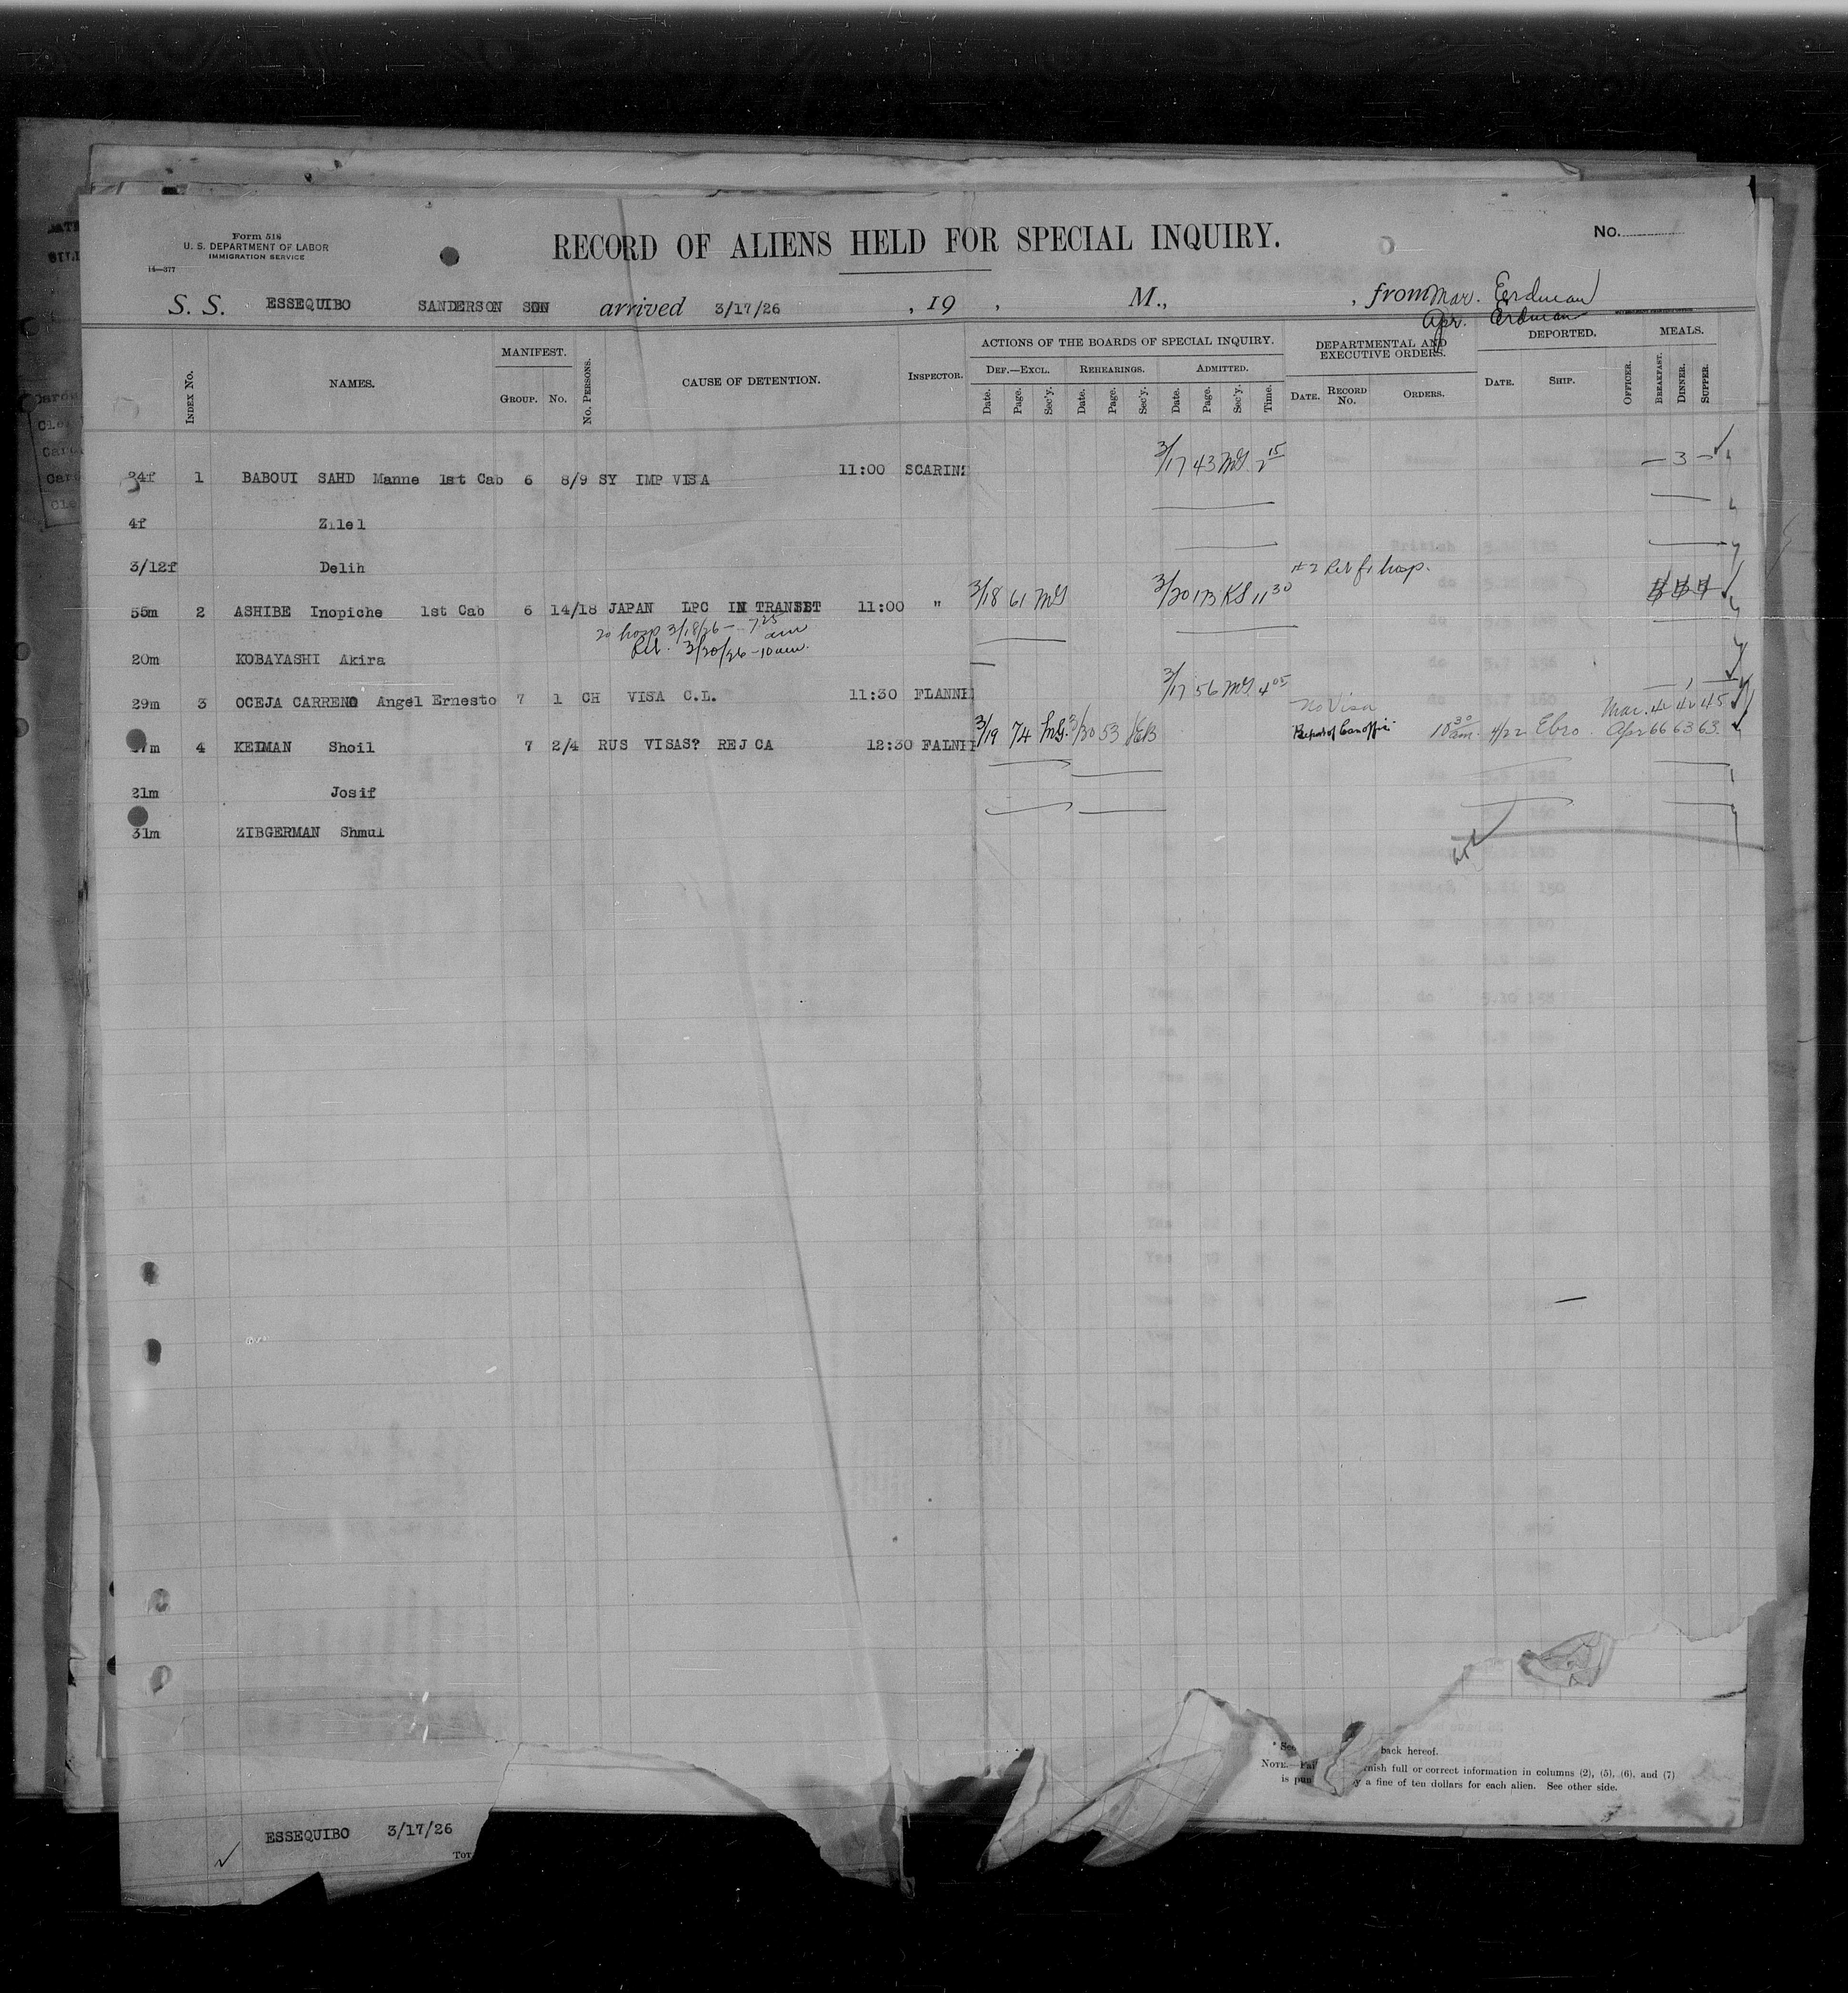 Form 518
U. S. DEPARTMENT OF LABOR
IMMIGRATION SERVICE
14—377
RECORD OF ALIENS HELD FOR SPECIAL INQUIRY.
No.
S. S. ESSEQUIBO SANDERSON SON arrived 3/17/26 , 19 , M., , from Mar. Erdman
Apr. Erdman
INDEX No.
NAMES.
MANIFEST.
GROUP. No.
No. PERSONS.
CAUSE OF DETENTION.
INSPECTOR.
ACTIONS OF THE BOARDS OF SPECIAL INQUIRY.
DEF.—EXCL. REHEARINGS. ADMITTED.
Date. Page. Sec'y. Date. Page. Sec'y. Date. Page. Sec'y. Time.
DEPARTMENTAL AND EXECUTIVE ORDERS.
DATE. RECORD No. ORDERS.
DEPORTED.
DATE. SHIP. OFFICER.
MEALS.
BREAKFAST. DINNER. SUPPER.
34f 1 BABOUI SAHD Manne 1st Cab 6 8/9 SY IMP VISA 11:00 SCARIN 3/17 43 MG 2 15 — 3 —
4f Zilel
3/12f Delih
#2 Rel fr hosp.
55m 2 ASHIBE Inopiche 1st Cab 6 14/18 JAPAN LPC IN TRANSIT 11:00 " 3/18 61 MG 3/20 173 KS 11 30
To hosp 3/18/26 — 7 25 am
Rel. 3/20/26 — 10 am.
20m KOBAYASHI Akira
29m 3 OCEJA CARRENO Angel Ernesto 7 1 CH VISA C.L. 11:30 FLANNE 3/17 56 MG 4 05 — 1 —
No Visa Mar. 42 42 45
7m 4 KEIMAN Shoil 7 2/4 RUS VISAS? REJ CA 12:30 FALNE 3/19 74 MG. 3/30 53 EB 10 30 am. 4/22 Ebro. Apr 66 63 63
21m Josif
31m ZIBGERMAN Shmul
* See back hereof.
NOTE.—Fai nish full or correct information in columns (2), (5), (6), and (7)
is pun y a fine of ten dollars for each alien. See other side.
ESSEQUIBO 3/17/26
TOT